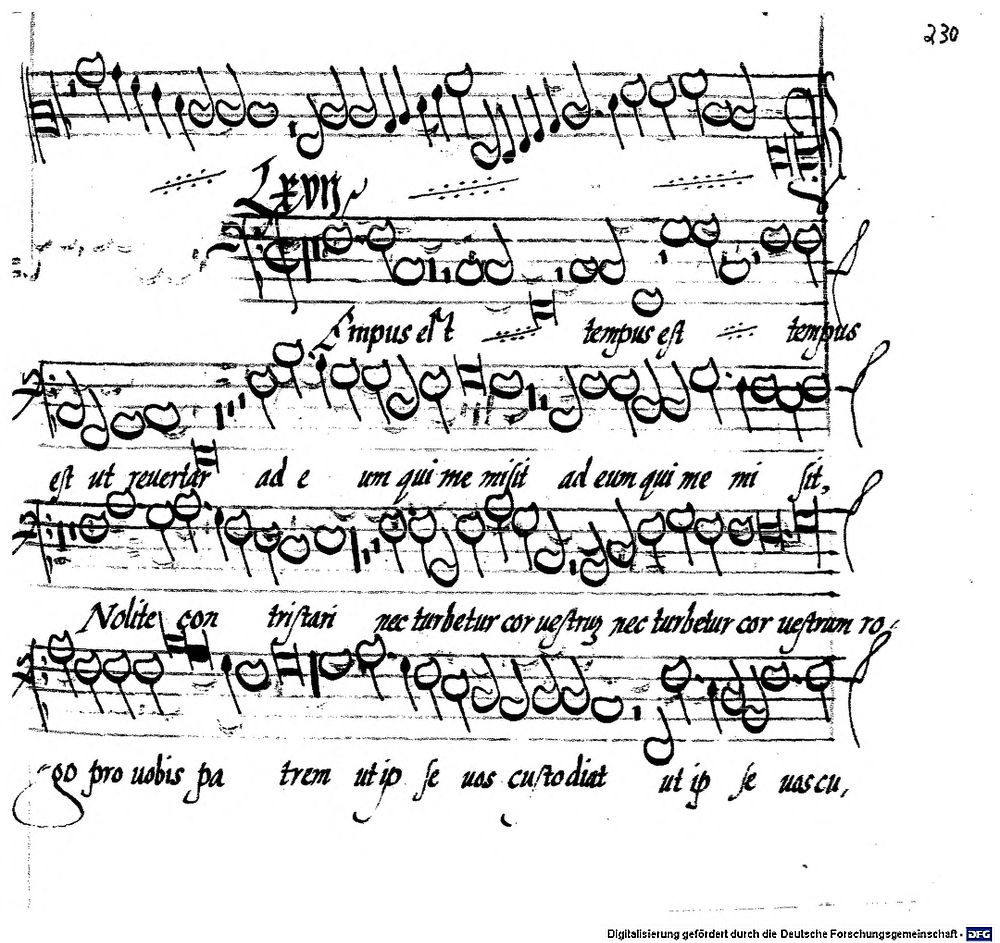 230
Lxvij
Empus est tempus est tempus
est ut reuertar ad e um qui me misit ad eum qui me mi sit,
Nolite con tristari nec turbetur cor uestrum nec turbetur cor uestrum ro-
-go pro uobis pa trem ut ip se uos custodiat ut ip se uos cu,
Digitalisierung gefördert durch die Deutsche Forschungsgemeinschaft - DFG